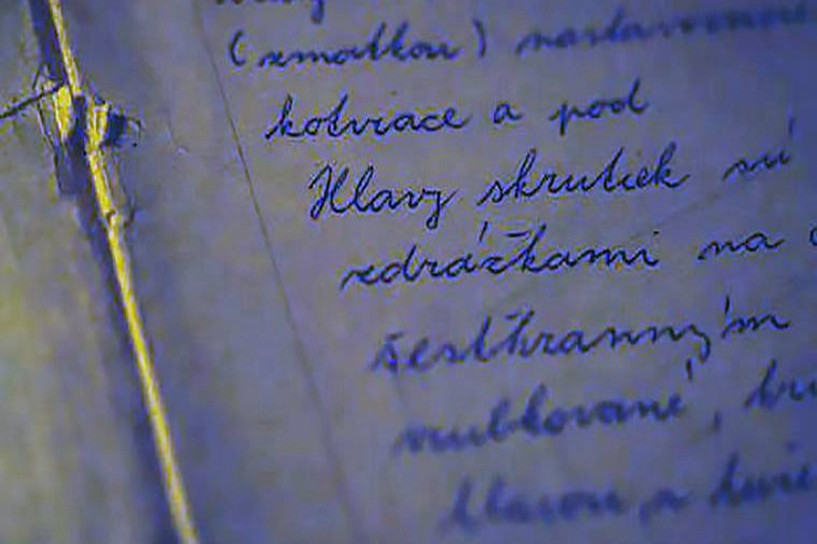 (zmatkou) nastavovacie
kotviace a pod
Hlavy skrutiek sú
zdrážkami na
šesťhranným
vrúbkované,
hlavou, s